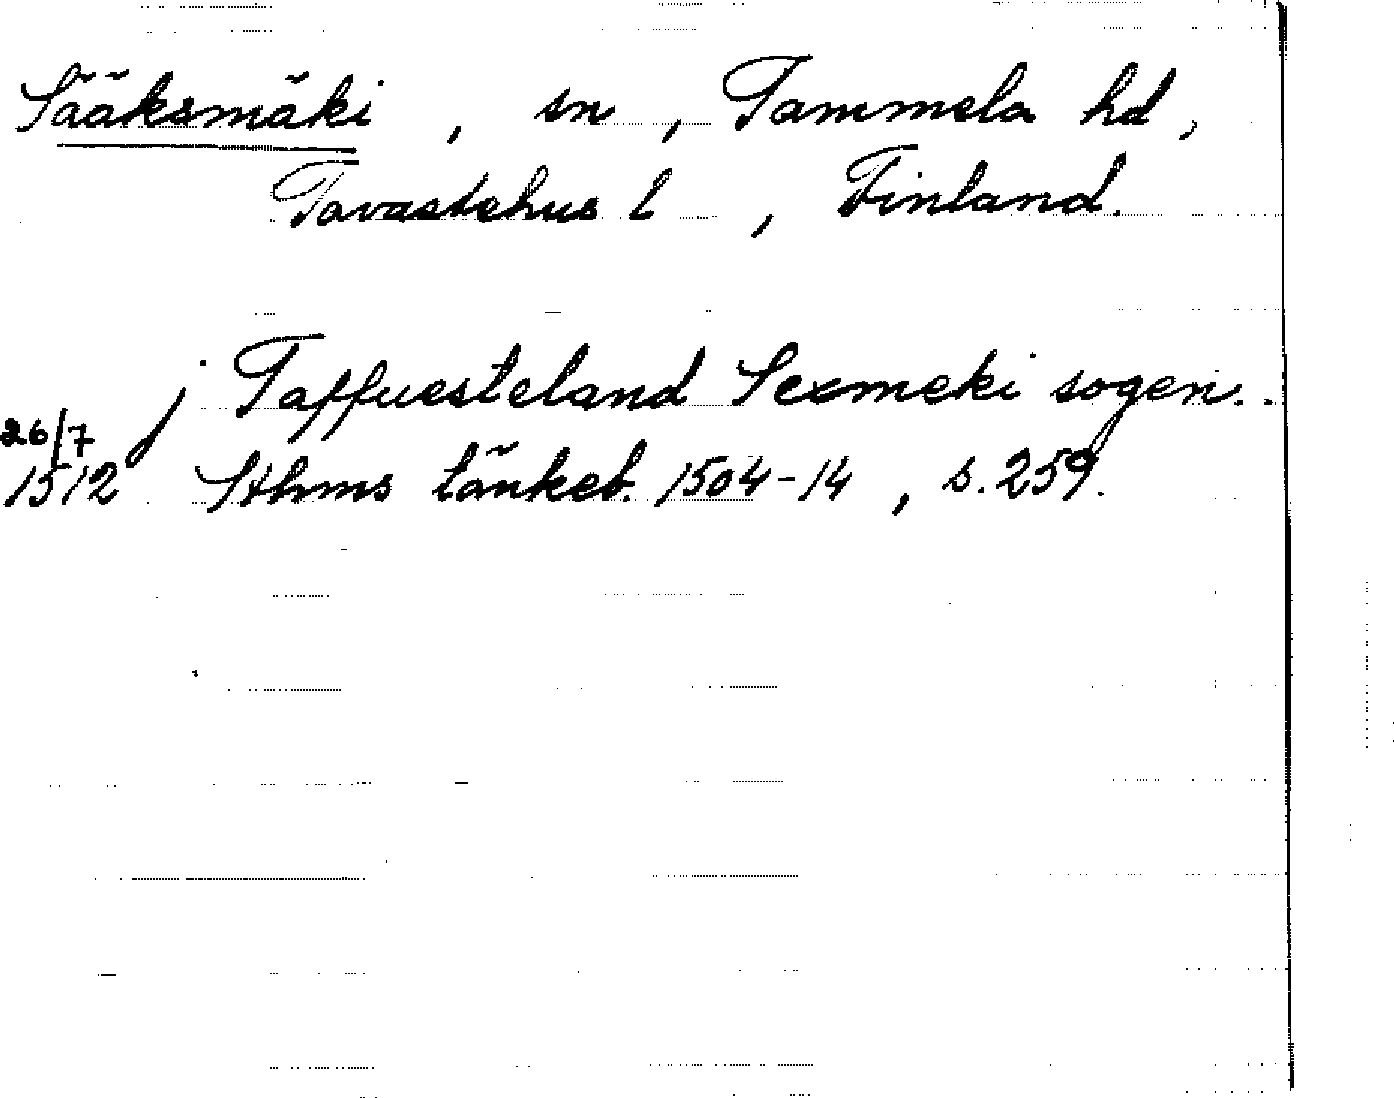 Sääksmäki, sn, Tammela hd,
Tavastehus l, Finland.
j Taffuesteland Sexmeki sogen.
26/7
1512 Sthms tänkeb. 1504-14, s. 259.